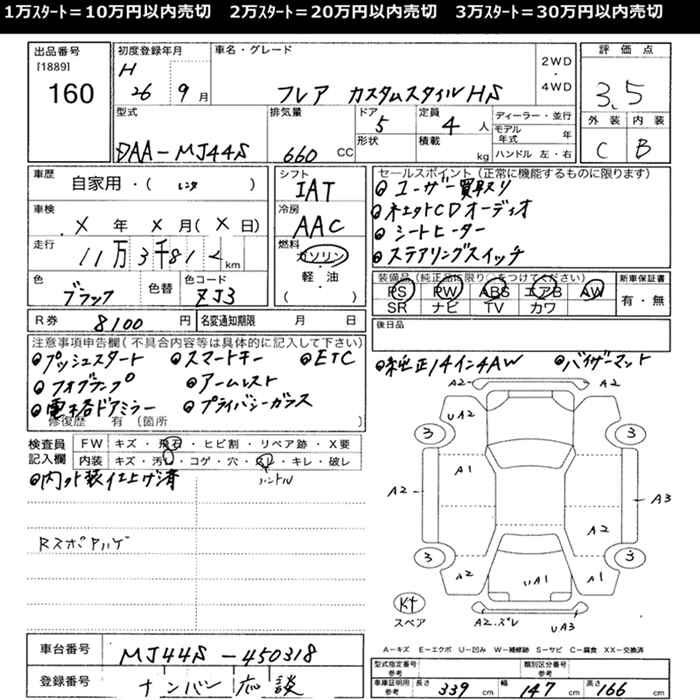 1万スタート＝10万円以内売切　2万スタート＝20万円以内売切　3万スタート＝30万円以内売切
出品番号
[1889]
160
初度登録年月
H
26 9 月
車名・グレード
フレア カスタムスタイル HS
2WD
・
4WD
評価点
3.5
外装 内装
C B
型式
DAA-MJ44S
排気量
660 CC
ドア
5
形状
定員
4 人
積載
kg
ディーラー・並行
モデル年式 年
ハンドル 左・右
車歴
自家用・( レンタ )
車検
X 年 X 月 ( X 日)
走行
11万3千812 km
色
ブラック
色替
色コード
ZJ3
シフト
IAT
冷房
AAC
燃料
ガソリン
・
軽油
( )
セールスポイント(正常に機能するものに限ります)
ユーザー買取り
純正CDオーディオ
シートヒーター
ステアリングスイッチ
装備品(純正品に限り○をつけてください)
PS PW ABS エアB AW
SR ナビ TV カワ
新車保証書
有・無
R券 8100 円
名変通知期限 月 日
後日品
注意事項申告欄(不具合内容等は具体的に記入して下さい)
プッシュスタート
スマートキー
ETC
フォグランプ
アームレスト
電格ドアミラー
プライバシーガラス
修復歴 有 (箇所 )
純正14インチAW
バイザーマット
検査員記入欄
FW キズ・飛石・ヒビ割・リペア跡・X要
内装 キズ・汚レ・コゲ・穴・スレ・キレ・破レ
ハンドル
内外装仕上げ済
Rスポアハゲ
A2 A2
UA2
3 3
A1
A2 A3
A2
3 3
A2 A1 A1
Kｷ
スペア
A2.ズレ UA3
A－キズ E－エクボ U－凹み W－補修跡 S－サビ C－腐食 XX－交換済
車台番号
MJ44S-450318
登録番号
ナンバー応談
型式指定番号
参考
類別区分番号
参考
車庫証明用
参考
長さ 339 cm
幅 147 cm
高さ 166 cm